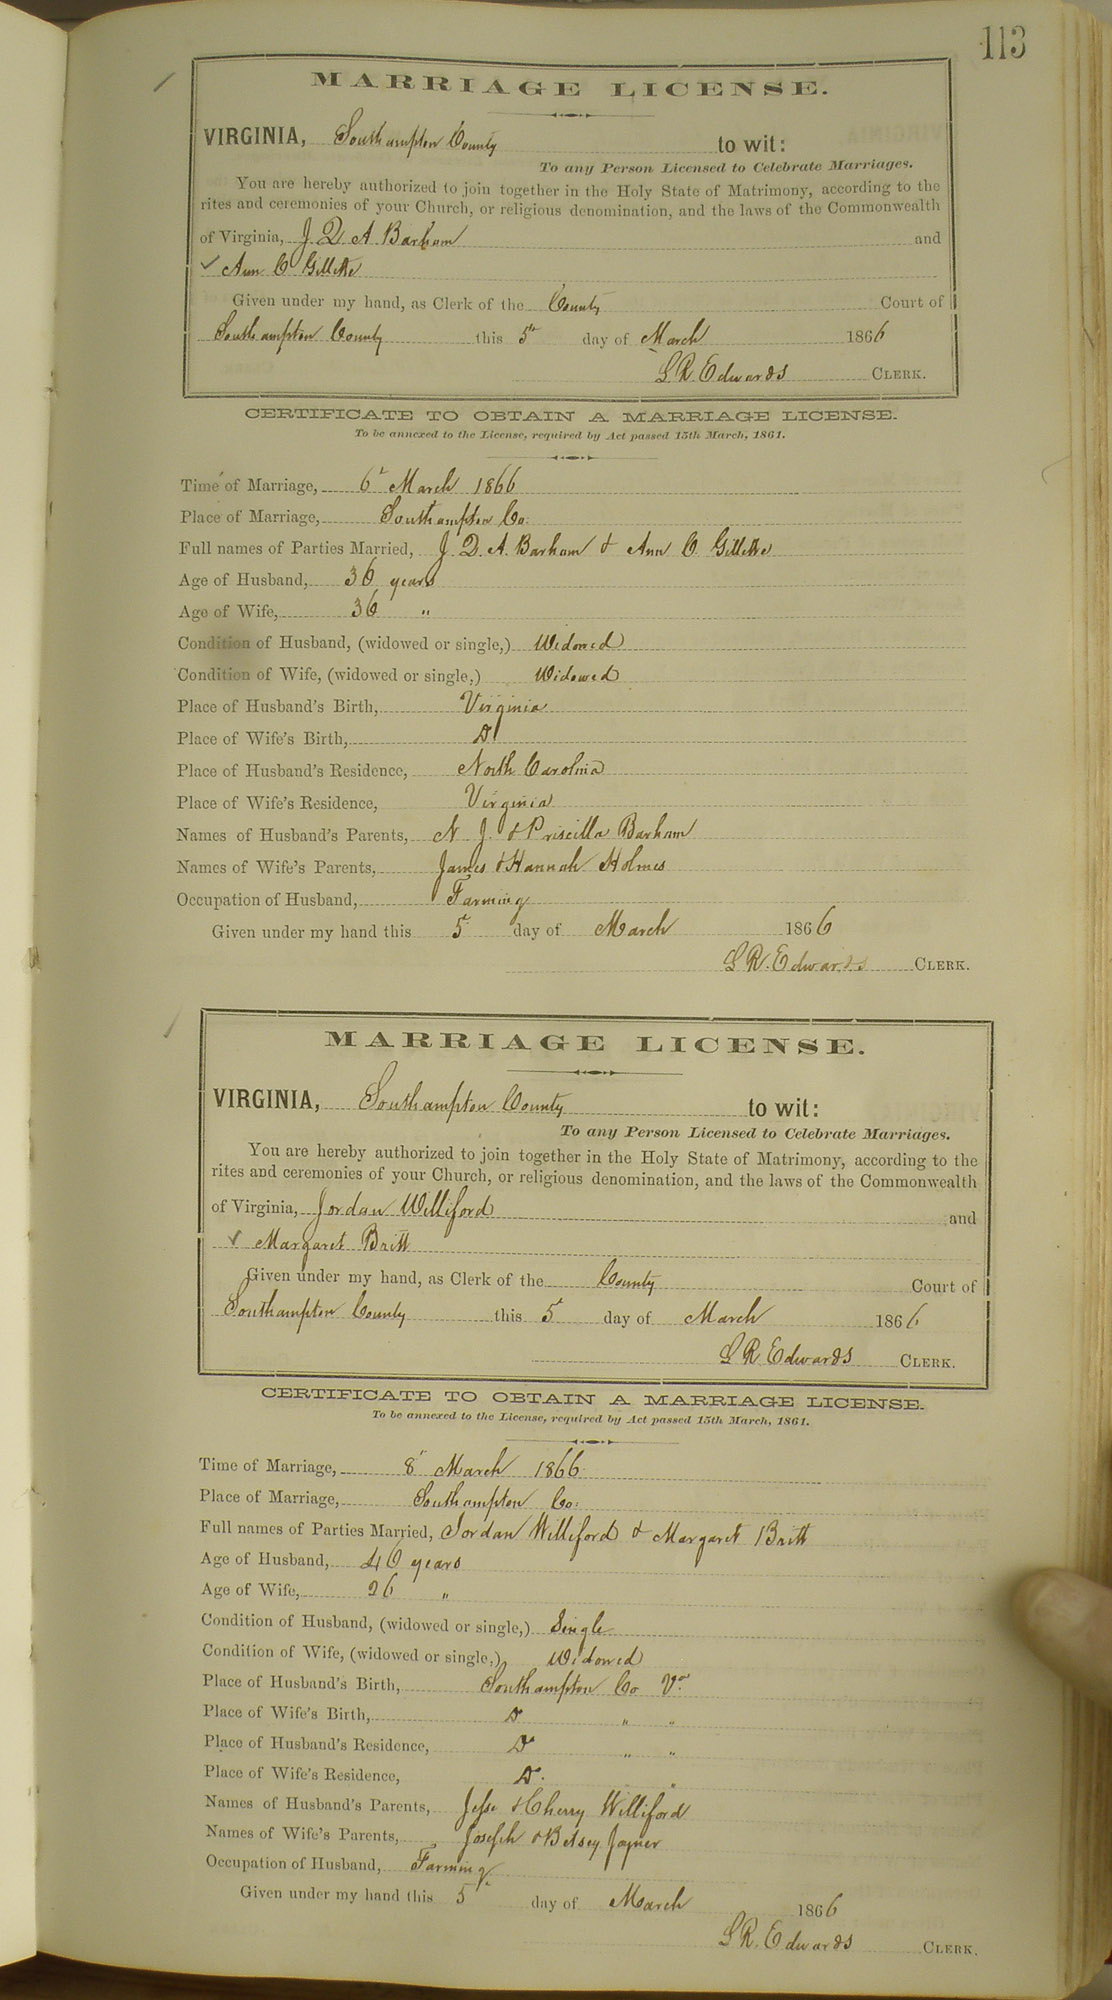 113
MARRIAGE LICENSE.
VIRGINIA, Southampton County to wit:
To any Person Licensed to Celebrate Marriages.
You are hereby authorized to join together in the Holy State of Matrimony, according to the
rites and ceremonies of your Church, or religious denomination, and the laws of the Commonwealth
of Virginia, J. Q. A. Barham and
Ann C Gillette
Given under my hand, as Clerk of the County Court of
Southampton County this 5th day of March 1866
L R Edwards CLERK.
CERTIFICATE TO OBTAIN A MARRIAGE LICENSE.
To be annexed to the License, required by Act passed 15th March, 1861.
Time of Marriage, 6" March 1866
Place of Marriage, Southampton Co.
Full names of Parties Married, J. Q. A. Barham & Ann C. Gillette
Age of Husband, 36 years
Age of Wife, 36 "
Condition of Husband, (widowed or single,) Widowed
Condition of Wife, (widowed or single,) Widowed
Place of Husband's Birth, Virginia
Place of Wife's Birth, Do
Place of Husband's Residence, North Carolina
Place of Wife's Residence, Virginia
Names of Husband's Parents, N. J. & Priscilla Barham
Names of Wife's Parents, James & Hannah Holmes
Occupation of Husband, Farming
Given under my hand this 5" day of March 1866
L R. Edwards CLERK.
MARRIAGE LICENSE.
VIRGINIA, Southampton County to wit:
To any Person Licensed to Celebrate Marriages.
You are hereby authorized to join together in the Holy State of Matrimony, according to the
rites and ceremonies of your Church, or religious denomination, and the laws of the Commonwealth
of Virginia, Jordan Williford and
Margaret Britt
Given under my hand, as Clerk of the County Court of
Southampton County this 5" day of March 1866
L R. Edwards CLERK.
CERTIFICATE TO OBTAIN A MARRIAGE LICENSE.
To be annexed to the License, required by Act passed 15th March, 1861.
Time of Marriage, 8" March 1866
Place of Marriage, Southampton Co.
Full names of Parties Married, Jordan Williford & Margaret Britt
Age of Husband, 46 years
Age of Wife, 26 "
Condition of Husband, (widowed or single,) Single
Condition of Wife, (widowed or single,) Widowed
Place of Husband's Birth, Southampton Co Va.
Place of Wife's Birth, Do " "
Place of Husband's Residence, Do " "
Place of Wife's Residence, Do. "
Names of Husband's Parents, Jesse & Cherry Williford
Names of Wife's Parents, Joseph & Betsey Joyner
Occupation of Husband, Farming
Given under my hand this 5" day of March 1866
L R. Edwards CLERK.